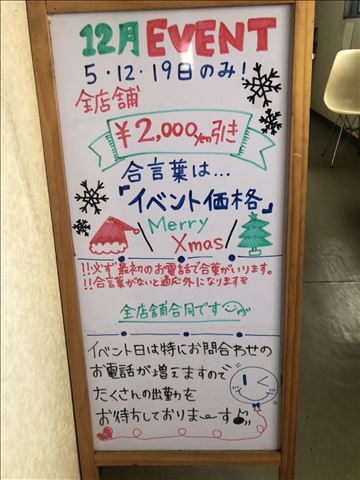 12月 EVENT
5・12・19日のみ!
全店舗
¥2,000yen引き
合言葉は...
『イベント価格』
Merry
Xmas
!!必ず最初のお電話で合葉がいります。
!!合言葉がないと適応外になります
全店舗合同です
イベント日は特にお問合わせの
お電話が増えますので
たくさんの出勤を
お待ちしておりまーす♪